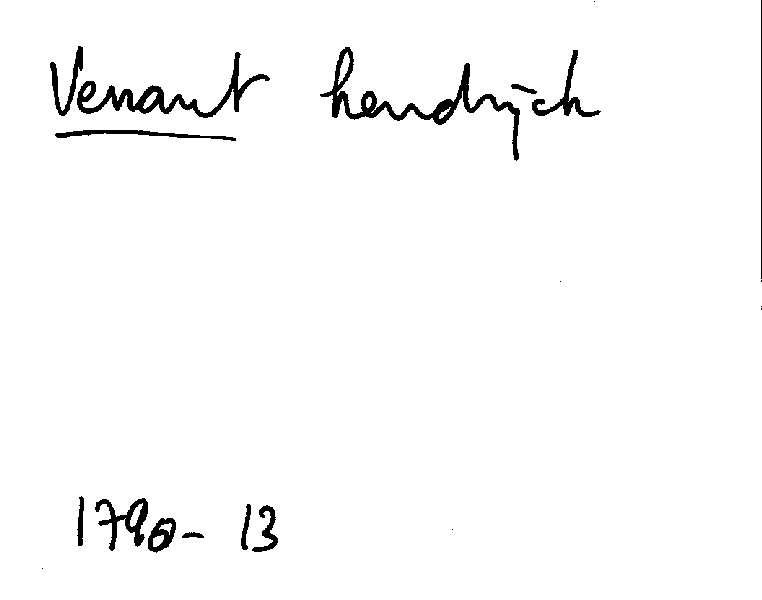 Venant hendrijck
1790- 13